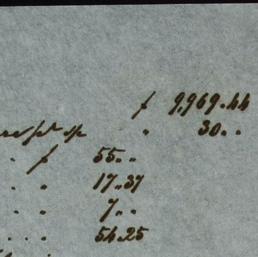 f 9,969.44
" 30 . .
" f 55 . .
" " 17.,37
" " 7 . .
" " 54.25